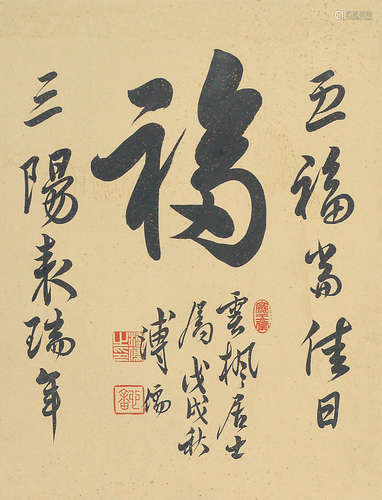 五福當佳日
福
三陽表瑞年
雲楓居士
屬戊戌秋
溥儒